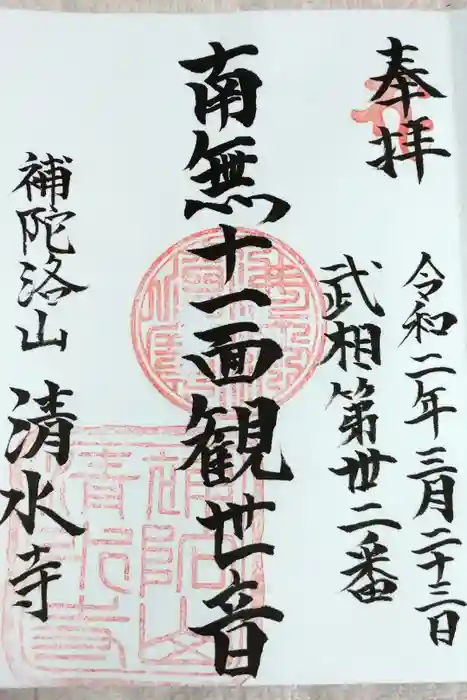 奉拝
令和二年三月二十三日
武相第丗二番
南無十一面観世音
補陀洛山
清水寺